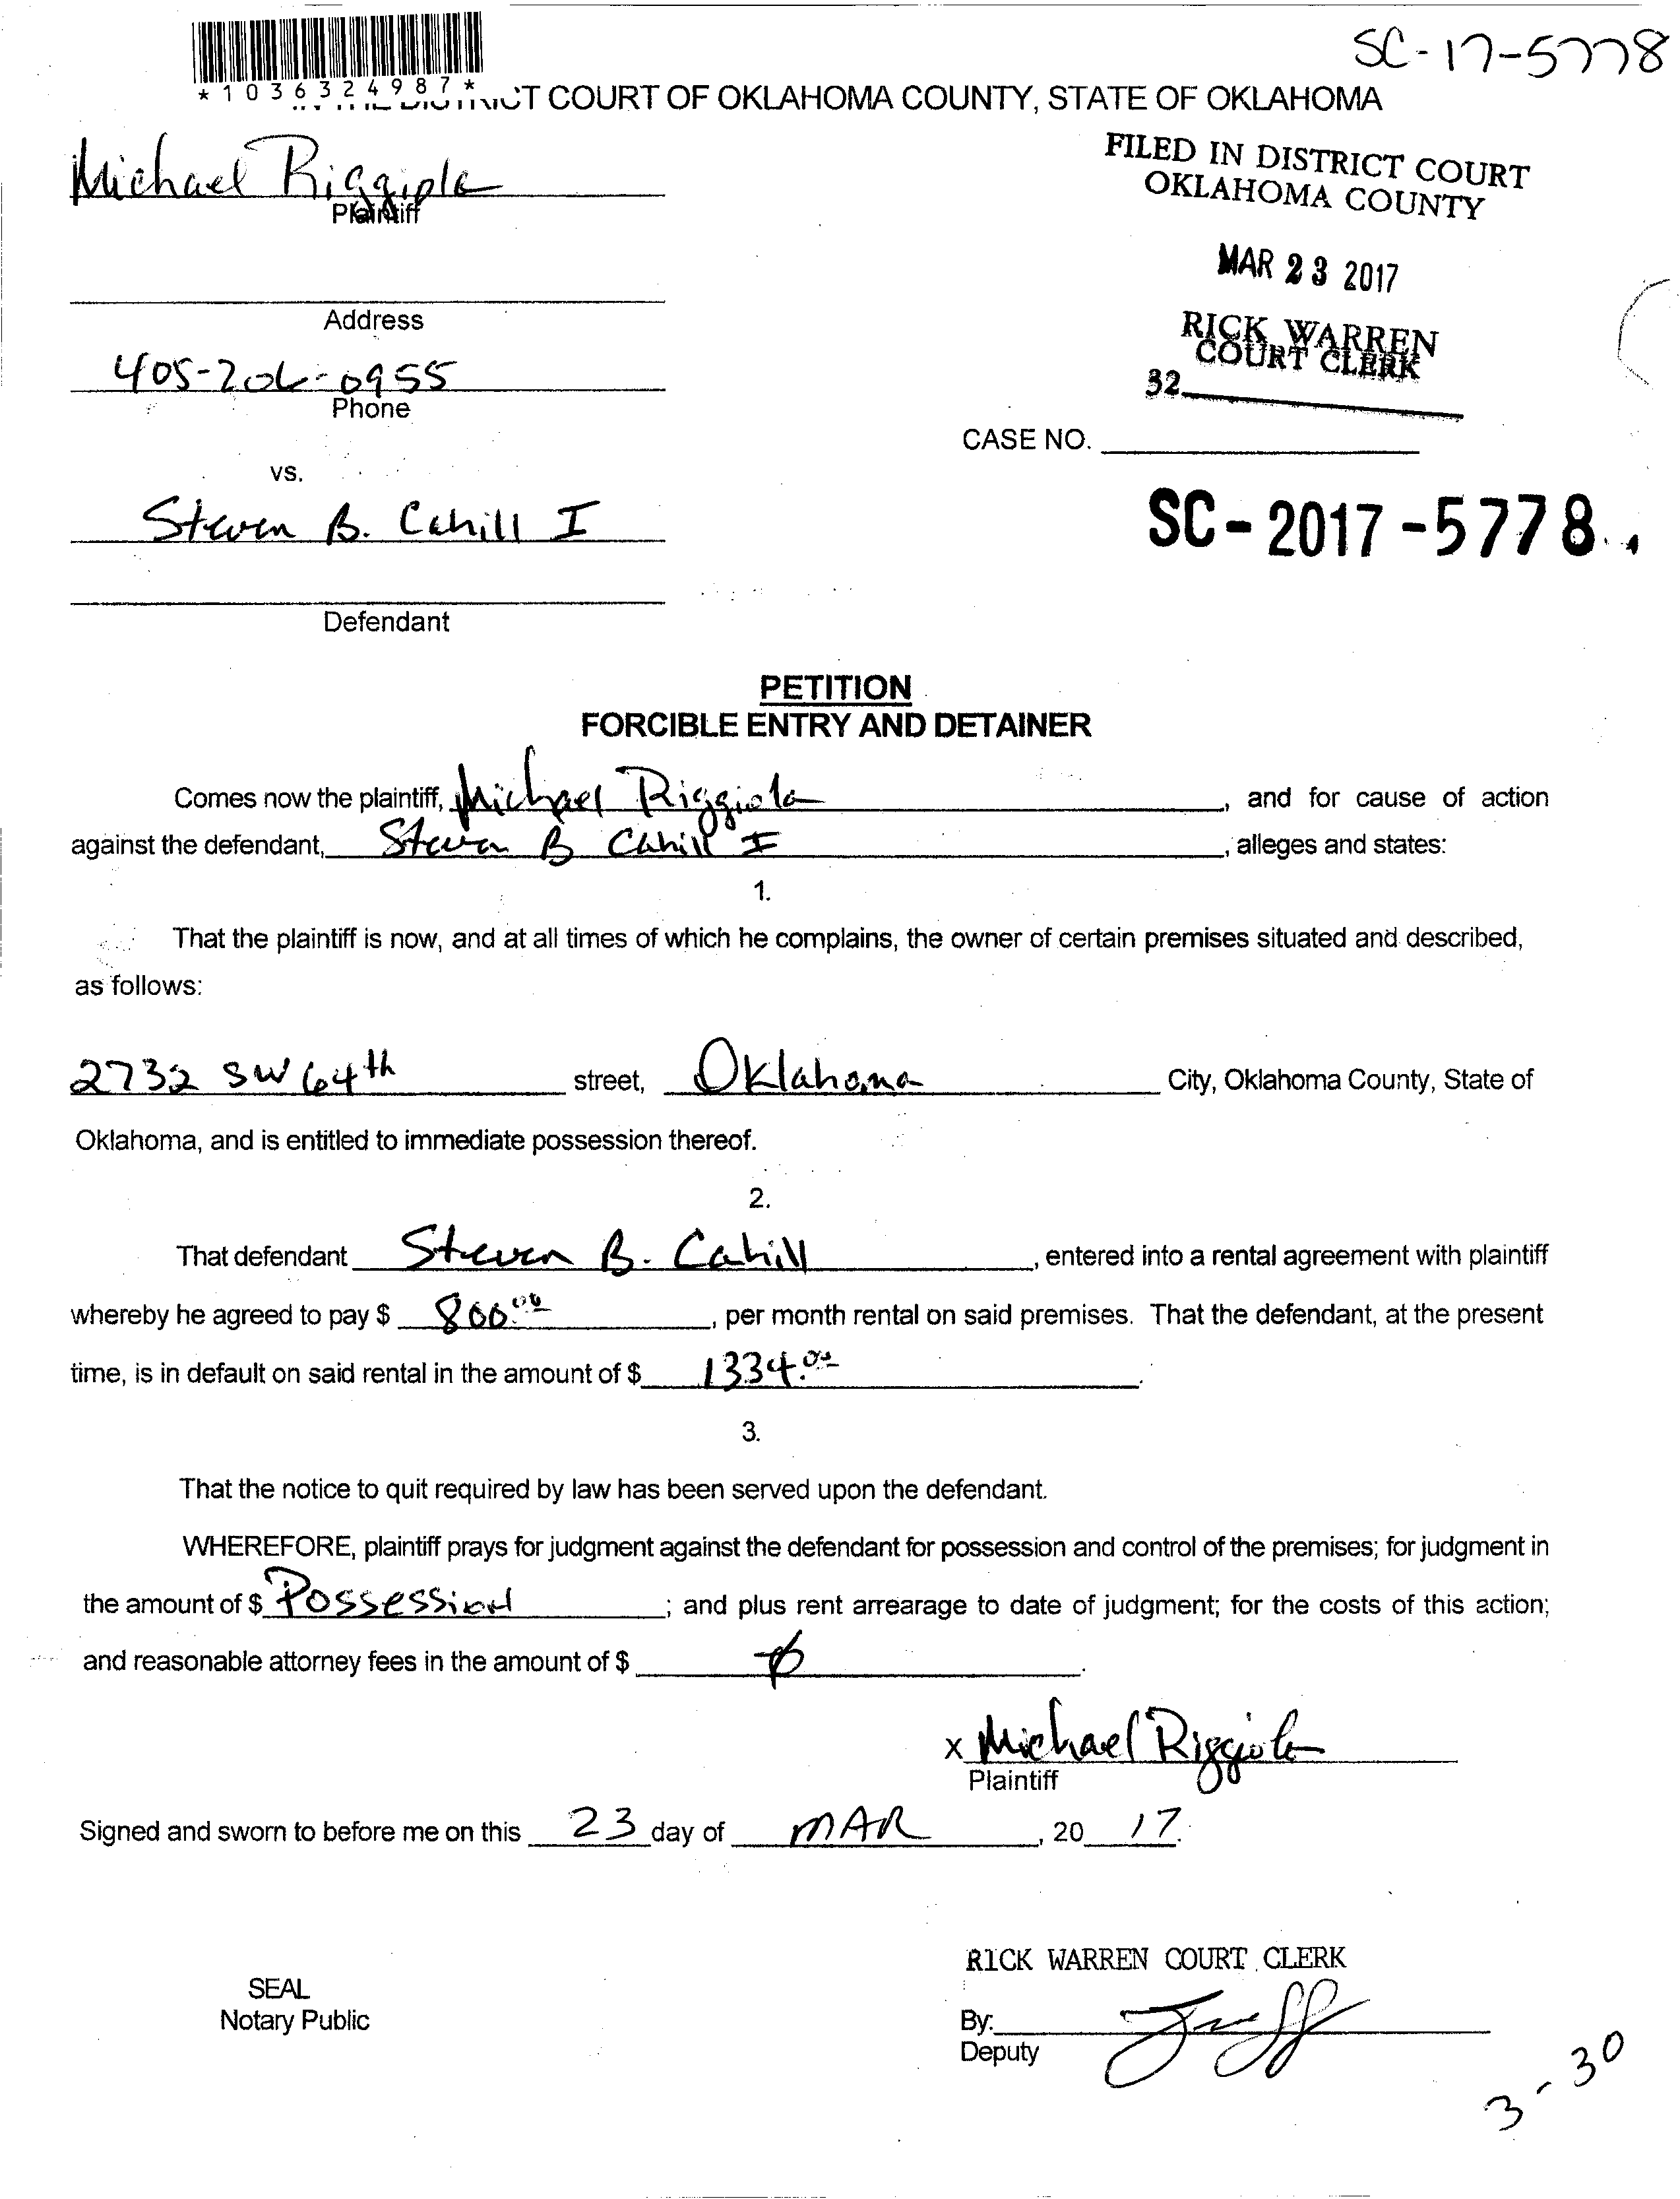 SC-17-5778
*1036324987*
COURT OF OKLAHOMA COUNTY, STATE OF OKLAHOMA
Michael Riggiola
Plaintiff
FILED IN DISTRICT COURT
OKLAHOMA COUNTY
MAR 23 2017
RICK WARREN
COURT CLERK
32
Address
405-206-0955
Phone
CASE NO.
vs.
Steven B. Cahill I
SC-2017-5778
Defendant
PETITION
FORCIBLE ENTRY AND DETAINER
Comes now the plaintiff, Michael Riggiola, and for cause of action
against the defendant, Steven B Cahill I, alleges and states:
1.
That the plaintiff is now, and at all times of which he complains, the owner of certain premises situated and described,
as follows:
2732 SW 64th street, Oklahoma City, Oklahoma County, State of
Oklahoma, and is entitled to immediate possession thereof.
2.
That defendant Steven B. Cahill, entered into a rental agreement with plaintiff
whereby he agreed to pay $ 800.00, per month rental on said premises. That the defendant, at the present
time, is in default on said rental in the amount of $ 1334.00.
3.
That the notice to quit required by law has been served upon the defendant.
WHEREFORE, plaintiff prays for judgment against the defendant for possession and control of the premises; for judgment in
the amount of $ Possession; and plus rent arrearage to date of judgment; for the costs of this action;
and reasonable attorney fees in the amount of $ ∅.
x Michael Riggiola
Plaintiff
Signed and sworn to before me on this 23 day of MAR, 20 17.
RICK WARREN COURT CLERK
SEAL
Notary Public
By:
Deputy
3-30